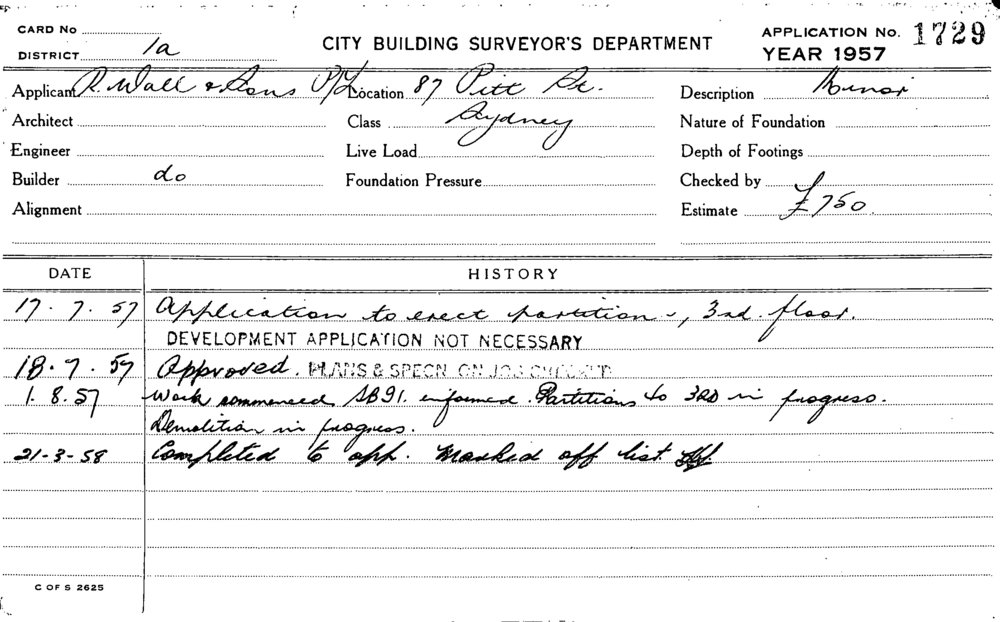 CARD No
CITY BUILDING SURVEYOR'S DEPARTMENT
APPLICATION No. 1729
DISTRICT 1a
YEAR 1957
Applicant R. Wall & Sons P/L Location 87 Pitt St. Description Minor
Architect Class Sydney Nature of Foundation
Engineer Live Load Depth of Footings
Builder do Foundation Pressure Checked by
Alignment Estimate £750.
DATE HISTORY
17.7.57 Application to erect partitions, 3rd floor.
DEVELOPMENT APPLICATION NOT NECESSARY
18.7.57 Approved. PLANS & SPECN ON JOB CHECKED
1.8.57 Work commenced SB91. informed. Partitions to 3RD in progress.
Demolition in progress.
21-3-58 Completed to app. Marked off list.
C OF S 2625